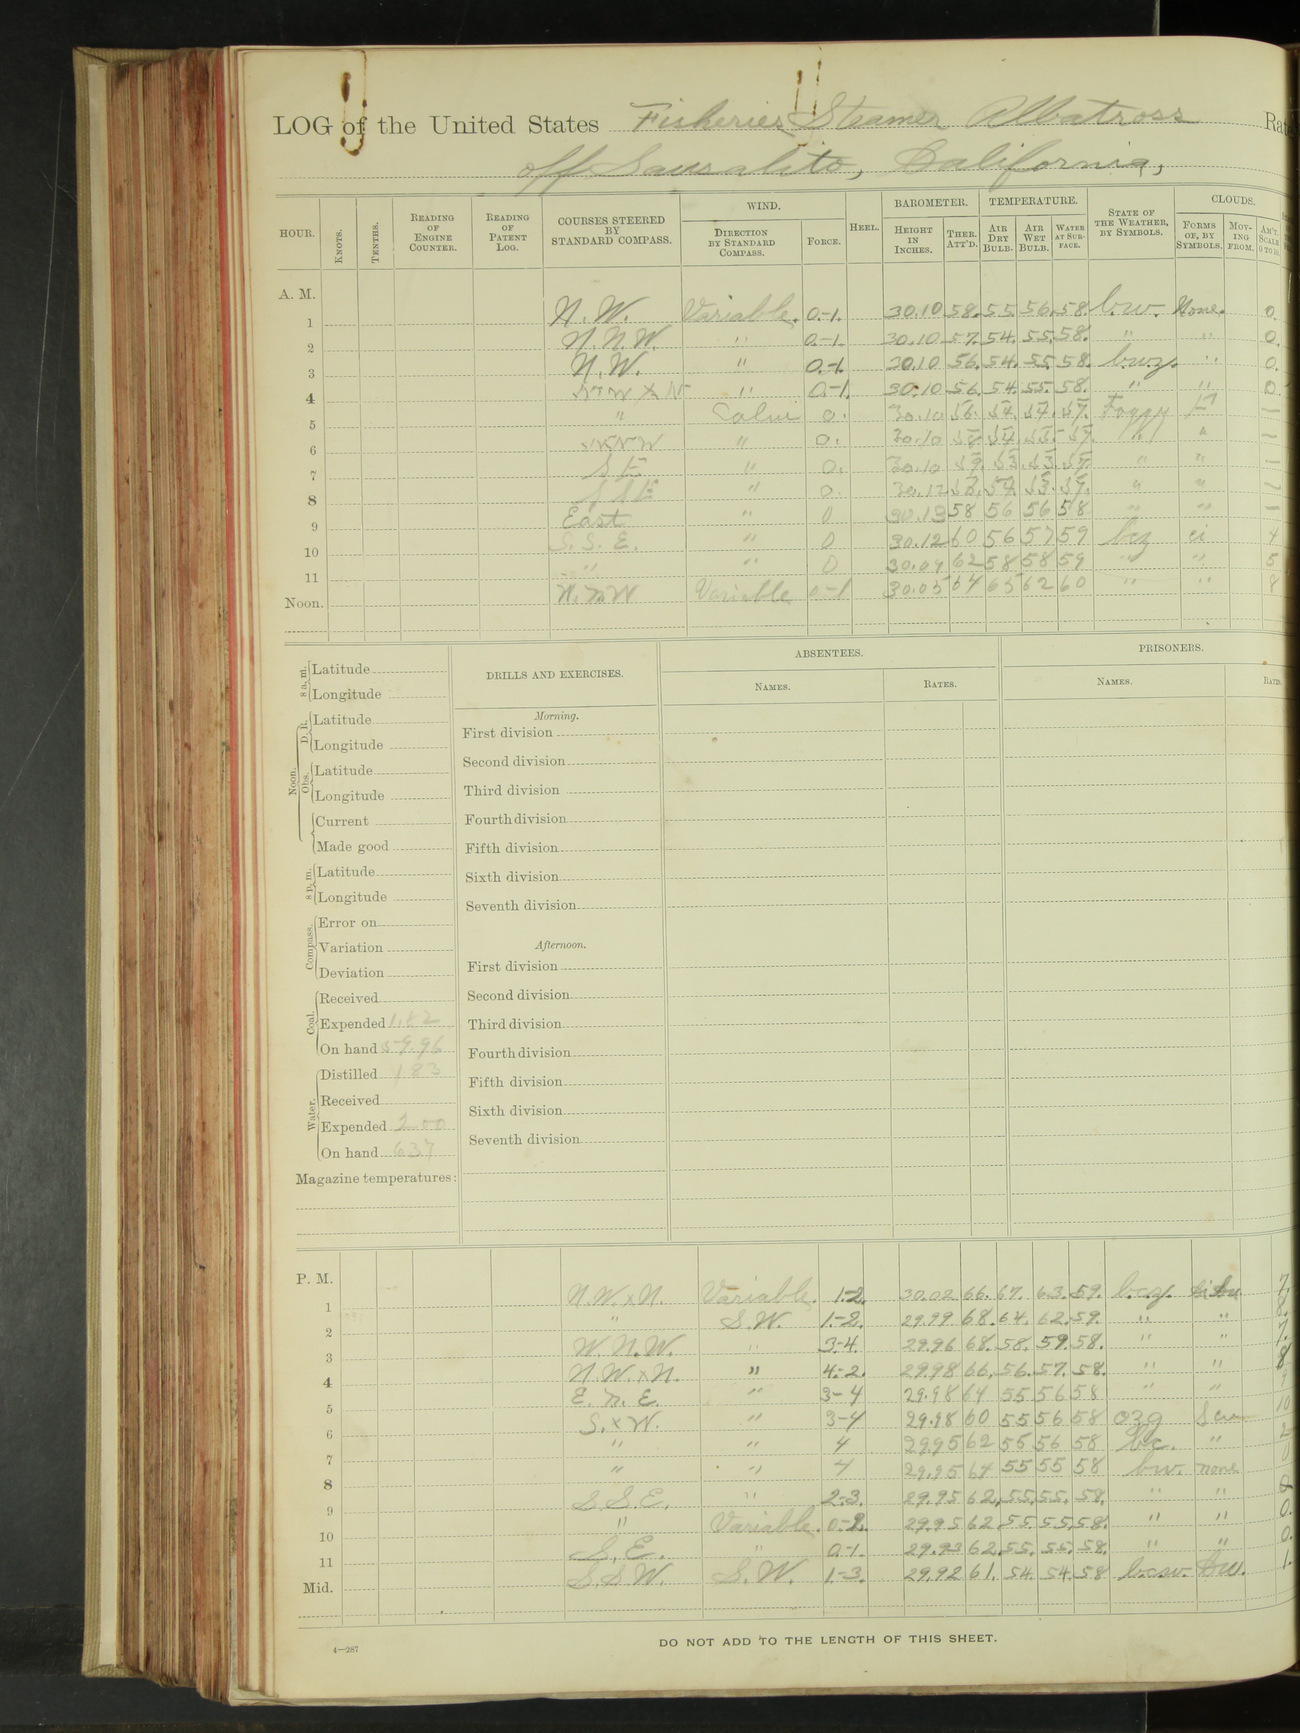 LOG of the United States Fisheries Steamer Albatross Rate
off Sausalito, California,
HOUR. KNOTS. TENTHS. READING OF ENGINE COUNTER. READING OF PATENT LOG. COURSES STEERED BY STANDARD COMPASS. WIND. DIRECTION BY STANDARD COMPASS. FORCE. HEEL. BAROMETER. HEIGHT IN INCHES. THER. ATT'D. TEMPERATURE. AIR DRY BULB. AIR WET BULB. WATER AT SURFACE. STATE OF THE WEATHER, BY SYMBOLS. CLOUDS. FORMS OF, BY SYMBOLS. MOVING FROM. AM'T. SCALE 0 TO 10.
A. M.
1 N. W. Variable. 0.-1. 30.10 58. 55. 56. 58. b.w. None. 0.
2 N. N. W. " 0.-1. 30.10 57. 54. 55. 58. " " 0.
3 N. W. " 0.-1. 30.10 56. 54. 55. 58. b.w.z. " 0.
4 NW x N " 0-1. 30.10 56. 54. 55. 58. " " 0.
5 " Calm 0. 30.10 Foggy —
6 " 0. 30.10 " " —
7 S E " 0. 30.10 59. 53. 53. 57. " " —
8 S S E " 0. 30.12 " " —
9 East " 0 30.13 58 56 56 58 " " —
10 S. S. E. " 0 30.12 60 56 57 59 bcz ci 4
11 " " 0 30.09 62 58 58 59 " " 5
Noon. N. N W Variable 0-1 30.05 64 65 62 60 " " 8
8 a. m. Latitude
Longitude
Noon. D. R. Latitude
Longitude
Obs. Latitude
Longitude
Current
Made good
8 p. m. Latitude
Longitude
Compass. Error on
Variation
Deviation
Coal. Received
Expended 1.82
On hand 59.96
Water. Distilled 183
Received
Expended 200
On hand 637
Magazine temperatures:
DRILLS AND EXERCISES.
Morning.
First division
Second division
Third division
Fourth division
Fifth division
Sixth division
Seventh division
Afternoon.
First division
Second division
Third division
Fourth division
Fifth division
Sixth division
Seventh division
ABSENTEES.
NAMES. RATES.
PRISONERS.
NAMES. RATES.
P. M.
1 N. W. x N. Variable. 1-2. 30.02 66. 67. 63. 59. b.c.z. 7.
2 " S. W. 1-2. 29.99 68. 64. 62. 59. " "
3 W. N. W. " 3-4. 29.96 68. 58. 59. 58. " " 7.
4 N. W. x N. " 4-2. 29.98 66. 56. 57. 58. " " 8
5 E. N. E. " 3-4 29.98 64 55 56 58 " "
6 S. x W. " 3-4 29.98 60 55 56 58 10
7 " " 4 29.95 62 55 56 58 bc. " 2
8 " " 4 29.95 64 55 55 58 bw. none 0
9 S. S. E. " 2-3. 29.95 62. 55. 55. 58. " " 0
10 " Variable. 29.95 62. 55. 55. 58. " " 0.
11 S. E. " 0-1. 29.93 62. 55. 55. 58. " " 0.
Mid. S. S. W. S. W. 1-3. 29.92 61. 54. 54. 58 b.c.w. 1.
4—287
DO NOT ADD TO THE LENGTH OF THIS SHEET.